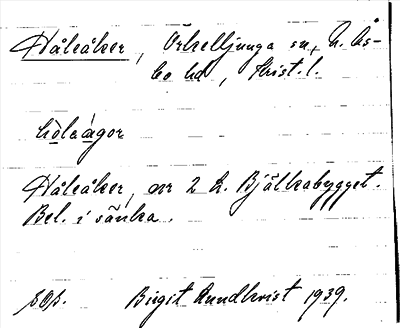 Håleåker, Örkelljunga sn, N. Ås-
bo hd, Krist. l.
hòlaágor
Håleåker, nr 2 L. Bjälkabygget.
Bel. i sänka.
Birgit Rundkvist 1939.